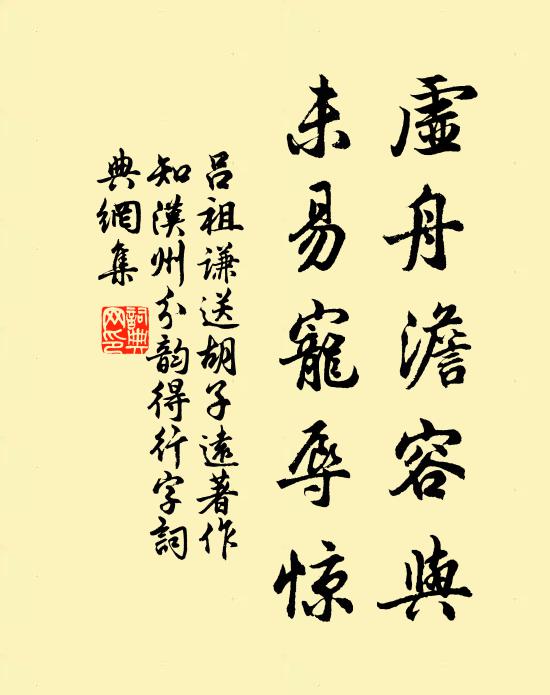 虛舟澹容與
未易寵辱惊
吕祖谦送胡子遠著作
知漢州分韵得行字詞
典網集
詞典網印